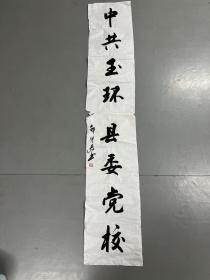 中共玉环县委党校